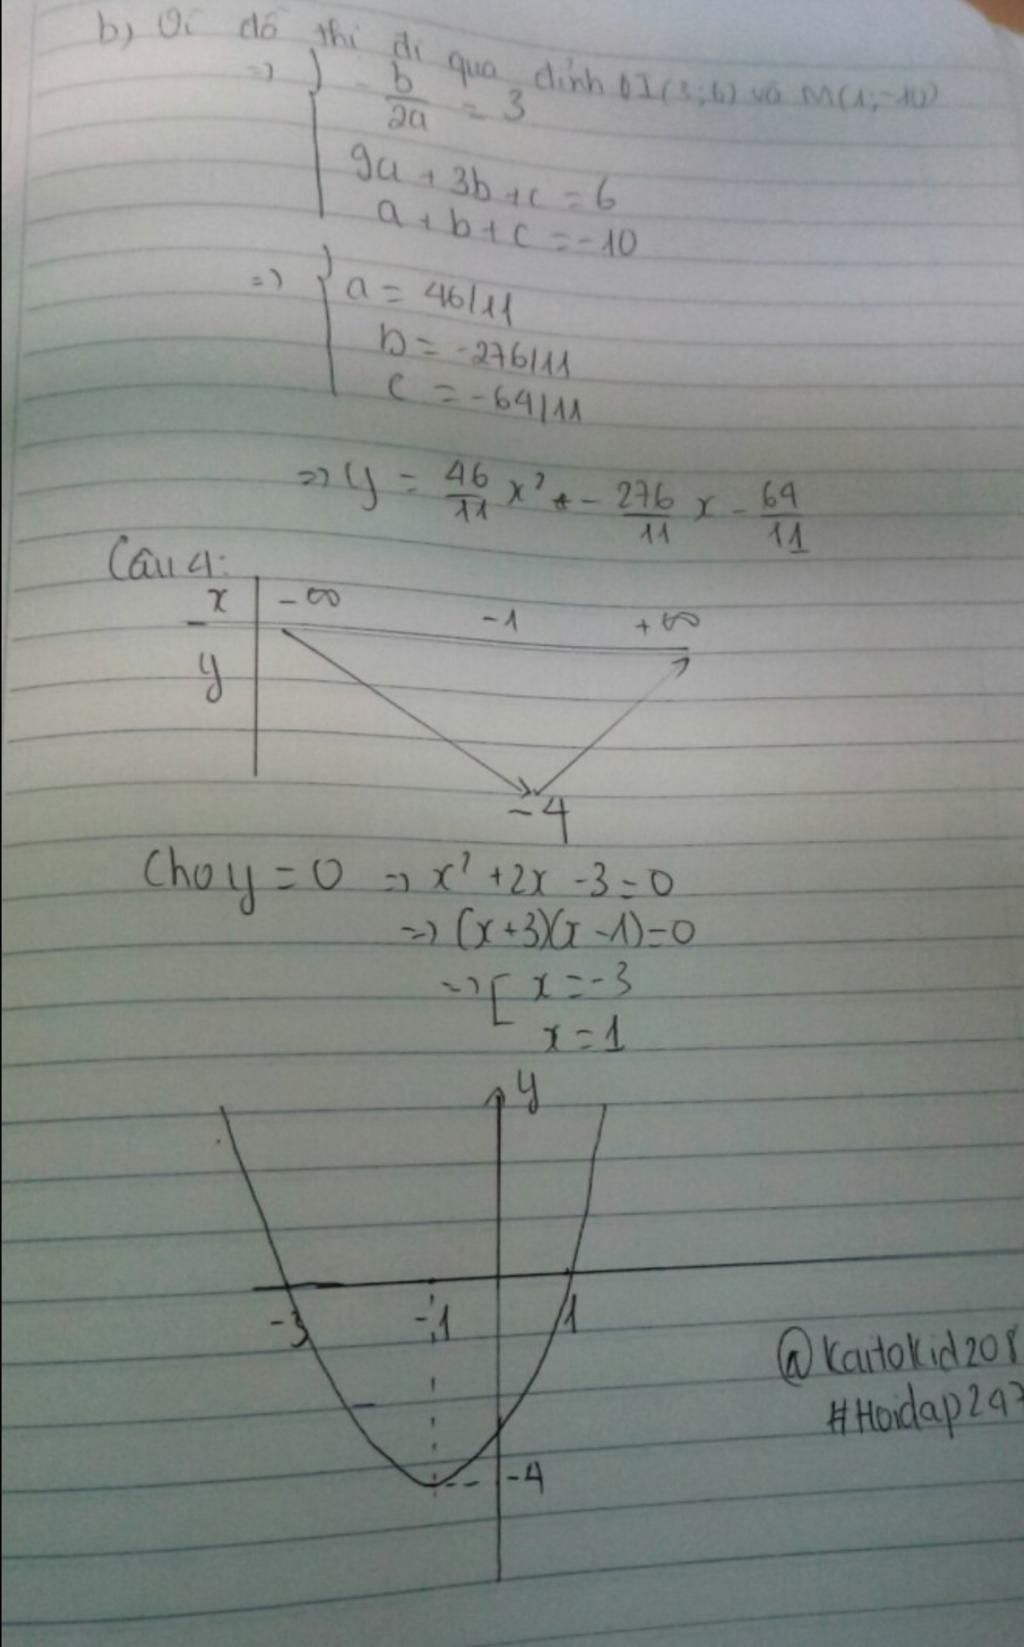 b) Vì đồ thị đi qua đỉnh I(3;6) và M(1;-10)
=> { -b/2a = 3
9a + 3b + c = 6
a + b + c = -10
=> { a = 46/11
b = -276/11
c = -64/11
=> y = 46/11 x² + - 276/11 x - 64/11
Câu 4:
x -∞ -1 +∞
y
-4
Cho y = 0 => x² + 2x - 3 = 0
=> (x+3)(x-1)=0
=> [ x = -3
x = 1
y
-3 -1 1
-4
@Kaitokid208
#Hoidap247